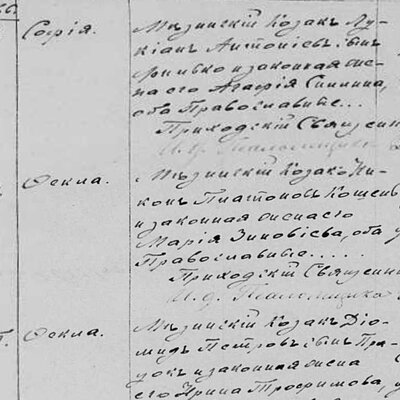 Софія.
Мѣзинскій Козакъ Лу-
кіанъ Антоніевъ сынъ
и законная же-
на его Агафія
оба Православные...
Приходскій Священни
Ѳекла.
Мѣзинскій Козакъ Ни-
конъ Платоновъ
и законная жена его
Марія Зиновіева, оба
Православные.....
Приходскій Священни
Ѳекла.
Мѣзинскій Козакъ Діо-
мидъ Петровъ сынъ
и законная жена
его Ирина Трофимова,